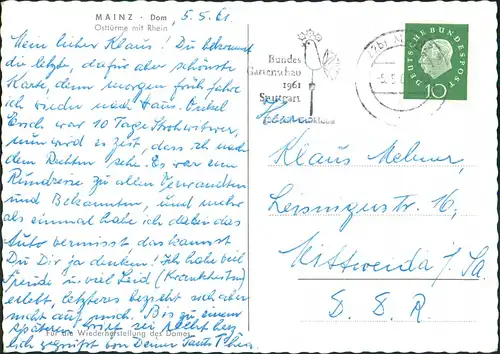 MAINZ · Dom
Osttürme mit Rhein
5.5.61.
Mein lieber Klaus! Du bekommst
die letzte, dafür aber schönste
Karte, denn morgen früh fahre
ich wieder nach Haus. Onkel
Erich war 10 Tage Strohwitwer,
nun wird es Zeit, dass ich nach
dem Rechten sehe. Es war eine
Rundreise zu allen Verwandten
und Bekannten, und mehr
als einmal habe ich dabei das
Auto vermisst das kannst
Du Dir ja denken! Ich habe viel
Freude u. viel Leid (Krankheiten)
erlebt, letzteres bezieht sich aber
nicht auf mich. Bis zu einem
späteren sei recht herz
lich gegrüßt von Deiner Tante
Für die Wiederherstellung des Domes
Bundes
Gartenschau
1961
Stuttgart
DEUTSCHE BUNDESPOST
10
Herrn
Klaus
16,
Mittweida / Sa.
D. D. R.